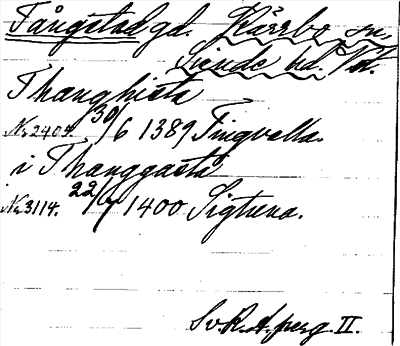 Tångstad gd. Kärrbo sn,
Siende hd. Vstm.
Thanghista
No 2404. 30/6 1389 Tingvalla.
i Thanggasta
No 3114. 22/7 1400 Sigtuna.
Sv. R. A. perg. II.